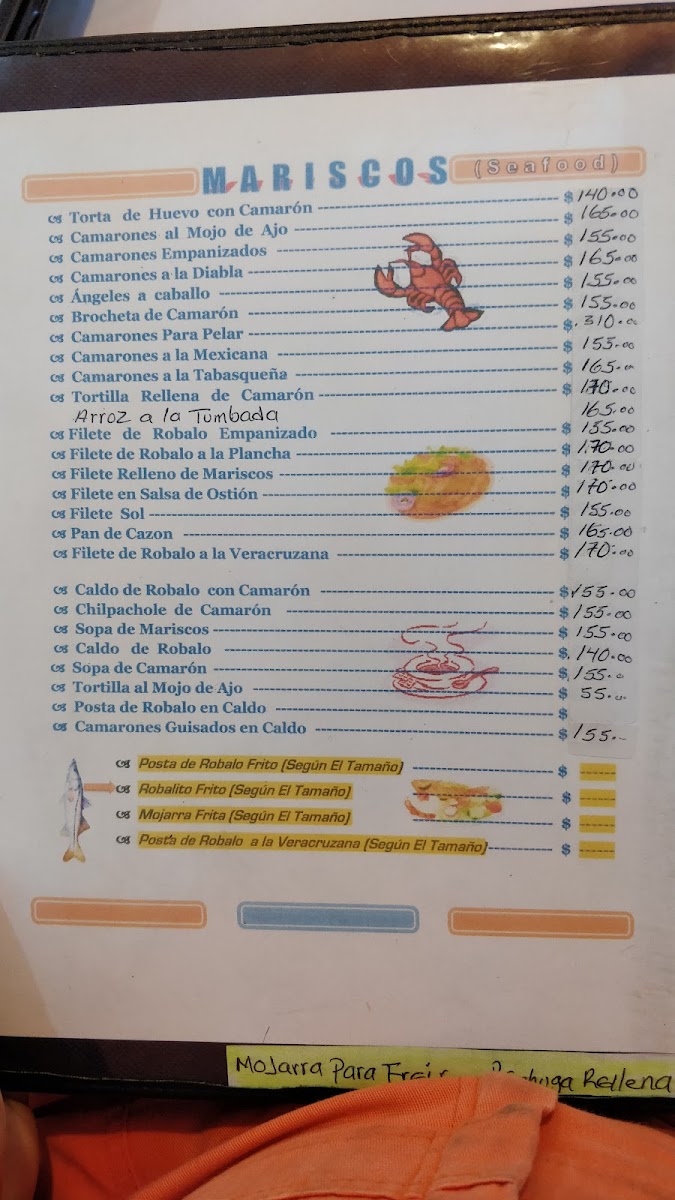 MARISCOS (Seafood)
Torta de Huevo con Camarón $ 140.00
Camarones al Mojo de Ajo $ 165.00
Camarones Empanizados $ 155.00
Camarones a la Diabla $ 165.00
Ángeles a caballo $ 155.00
Brocheta de Camarón $ 155.00
Camarones Para Pelar $ 310.00
Camarones a la Mexicana $ 155.00
Camarones a la Tabasqueña $ 165.00
Tortilla Rellena de Camarón $ 170.00
Arroz a la Tumbada 165.00
Filete de Robalo Empanizado $ 155.00
Filete de Robalo a la Plancha $ 170.00
Filete Relleno de Mariscos $ 170.00
Filete en Salsa de Ostión $ 170.00
Filete Sol $ 155.00
Pan de Cazon $ 165.00
Filete de Robalo a la Veracruzana $ 170.00
Caldo de Robalo con Camarón $ 155.00
Chilpachole de Camarón $ 155.00
Sopa de Mariscos $ 155.00
Caldo de Robalo $ 140.00
Sopa de Camarón $ 155.0
Tortilla al Mojo de Ajo $ 55.00
Posta de Robalo en Caldo $
Camarones Guisados en Caldo $ 155.-
Posta de Robalo Frito (Según El Tamaño) $ ------
Robalito Frito (Según El Tamaño) $ ------
Mojarra Frita (Según El Tamaño) $ ------
Posta de Robalo a la Veracruzana (Según El Tamaño) $ ------
Mojarra Para Rellena